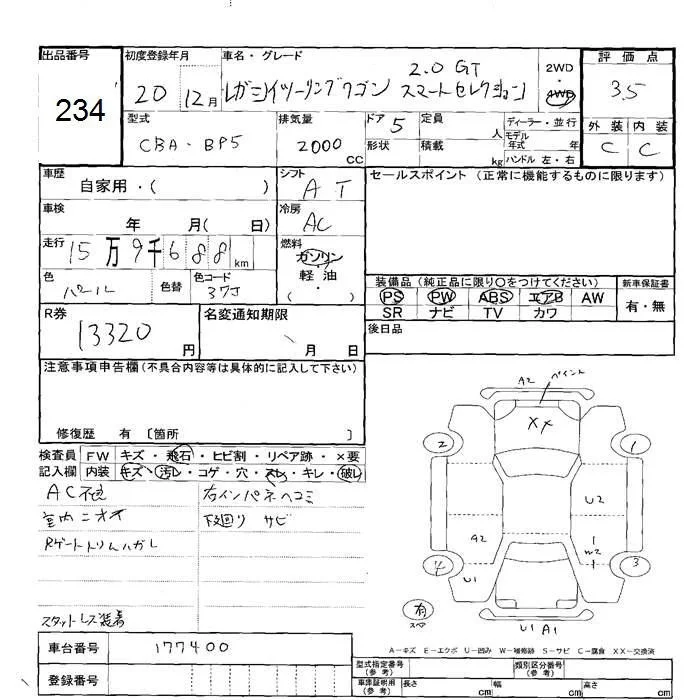 出品番号 234
初度登録年月 20 12月
車名・グレード レガシイツーリングワゴン 2.0 GT スマートセレクション
2WD・4WD
評価点 3.5
外装 内装
C C
型式 CBA-BP5
排気量 2000 cc
ドア 5
形状
定員 人
積載 kg
ディーラー・並行
モデル年式 年
ハンドル 左・右
車歴 自家用・( )
シフト AT
車検 年 月( 日)
冷房 AC
走行 15万9千688km
燃料 ガソリン・軽油・( )
色 パール 色替
色コード 37J
R券 13320円
名変通知期限 月 日
セールスポイント (正常に機能するものに限ります)
装備品 (純正品に限り○をつけてください)
PS PW ABS エアB AW
SR ナビ TV カワ
新車保証書 有・無
後日品
注意事項申告欄(不具合内容等は具体的に記入して下さい)
修復歴 有 〔箇所 〕
検査員記入欄
FW キズ・飛石・ヒビ割・リペア跡・×要
内装 キズ・汚レ・コゲ・穴・スレ・キレ・破レ
AC不良 右インパネヘコミ
室内ニオイ 下廻り サビ
Rゲートトリムハガレ
スタットレス装着
A2 ペイント
XX
2 1
U2
A2 W2
4 3
U1
有 スペア
U1 A1
A-キズ E-エクボ U-凹み W-補修跡 S-サビ C-腐食 XX-交換済
車台番号 177400
登録番号
型式指定番号(参考)
類別区分番号(参考)
車庫証明用(参考) 長さ cm 幅 cm 高さ cm